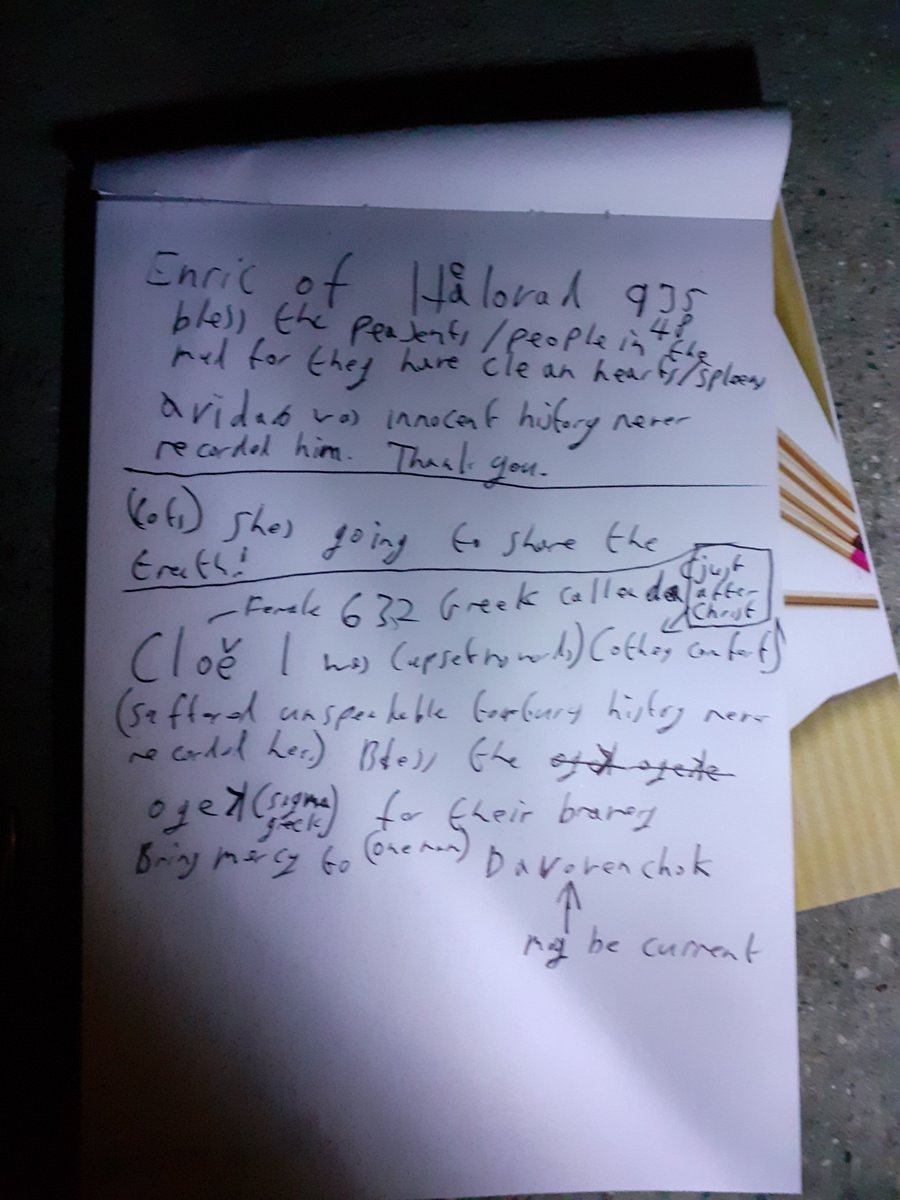 Enric of Hålovad 995
bless the peasents/people in the
mud for they have clean hearts/spleens
aridas was innocent history never
recorded him. Thank you.
shes going to share the
treath!
just
after
Christ
Female 632 Greek called
Cloë I was (upset no words) (othey comfort)
(suffered unspeakable tortury history never
recorded her.) Bless the
ogek (sigma
greek) for their bravery
Bring mercy to (one man) Davorenchok
may be current